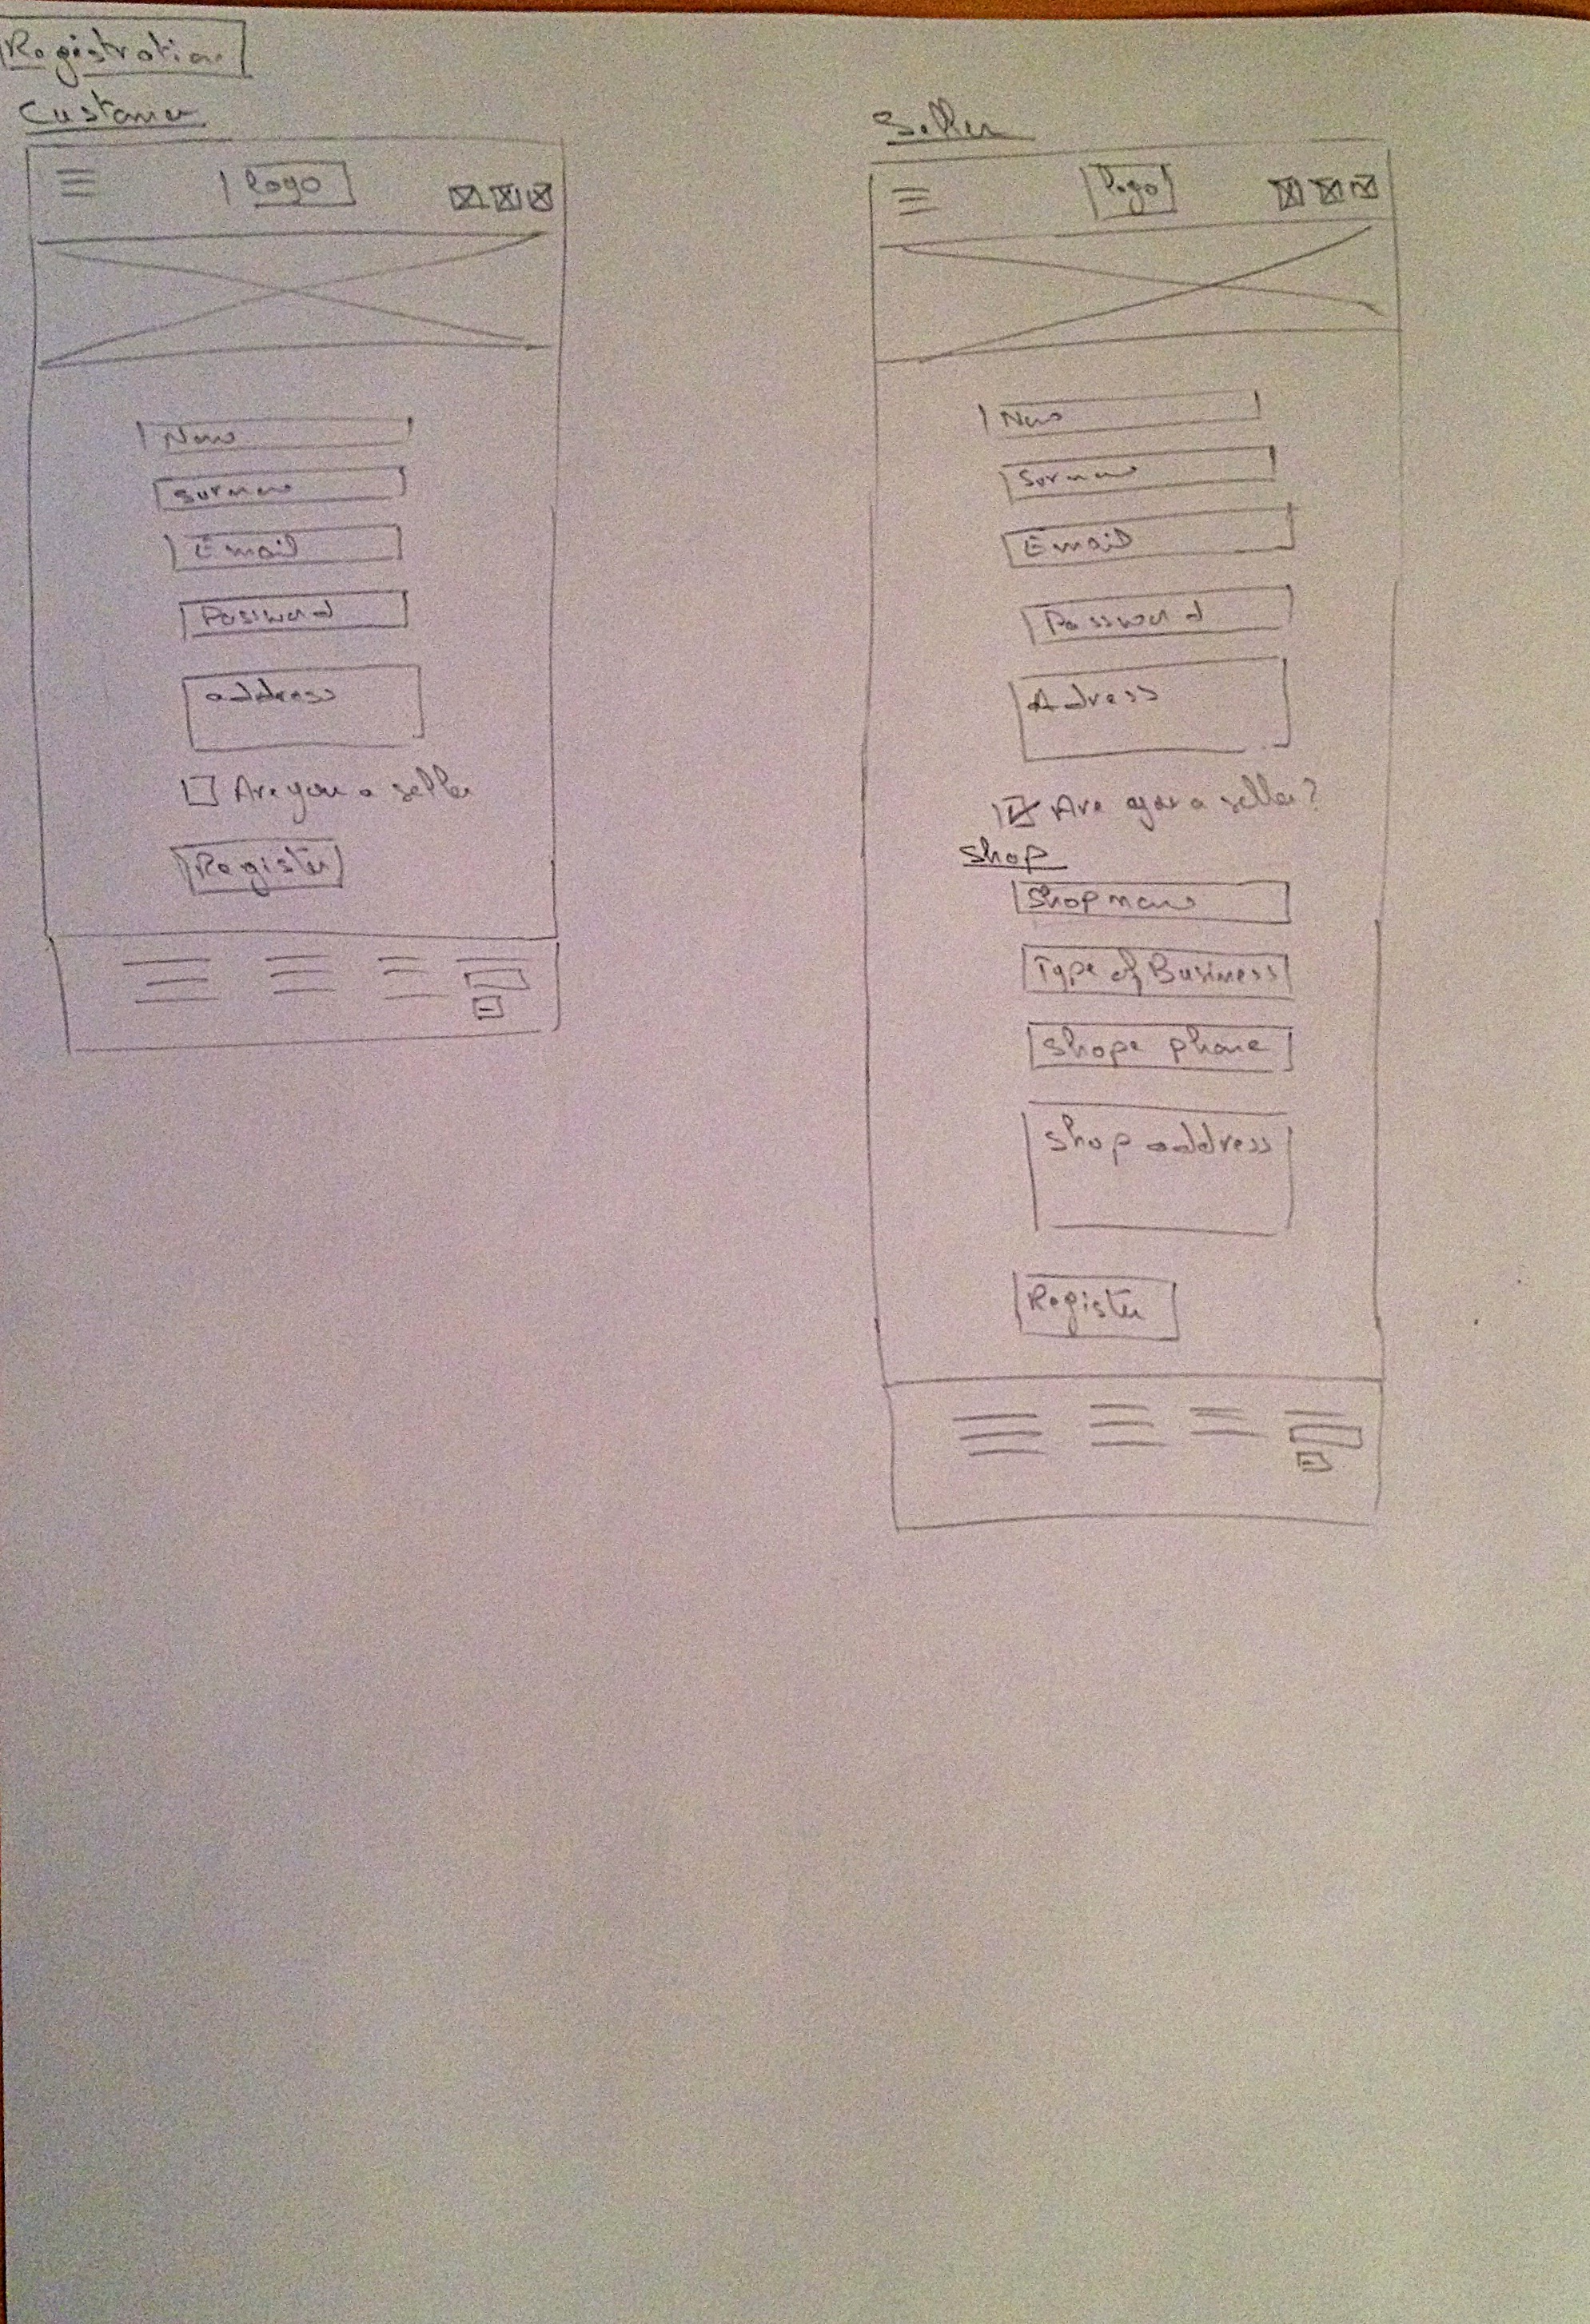 Registration
Customer
Logo
Name
Surname
Email
Password
address
Are you a seller
Register
Seller
Logo
Name
Surname
Email
Password
Adress
Are you a seller?
Shop
Shop name
Type of Business
Shope phone
Shop address
Register